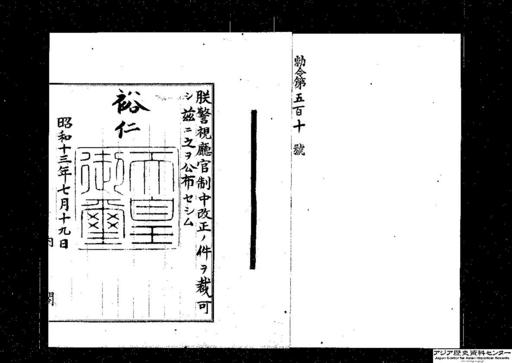 勅令第五百十號
朕警視廳官制中改正ノ件ヲ裁可
シ茲ニ之ヲ公布セシム
裕仁
天皇御璽
昭和十三年七月十九日
内閣
アジア歴史資料センター
Japan Center for Asian Historical Records